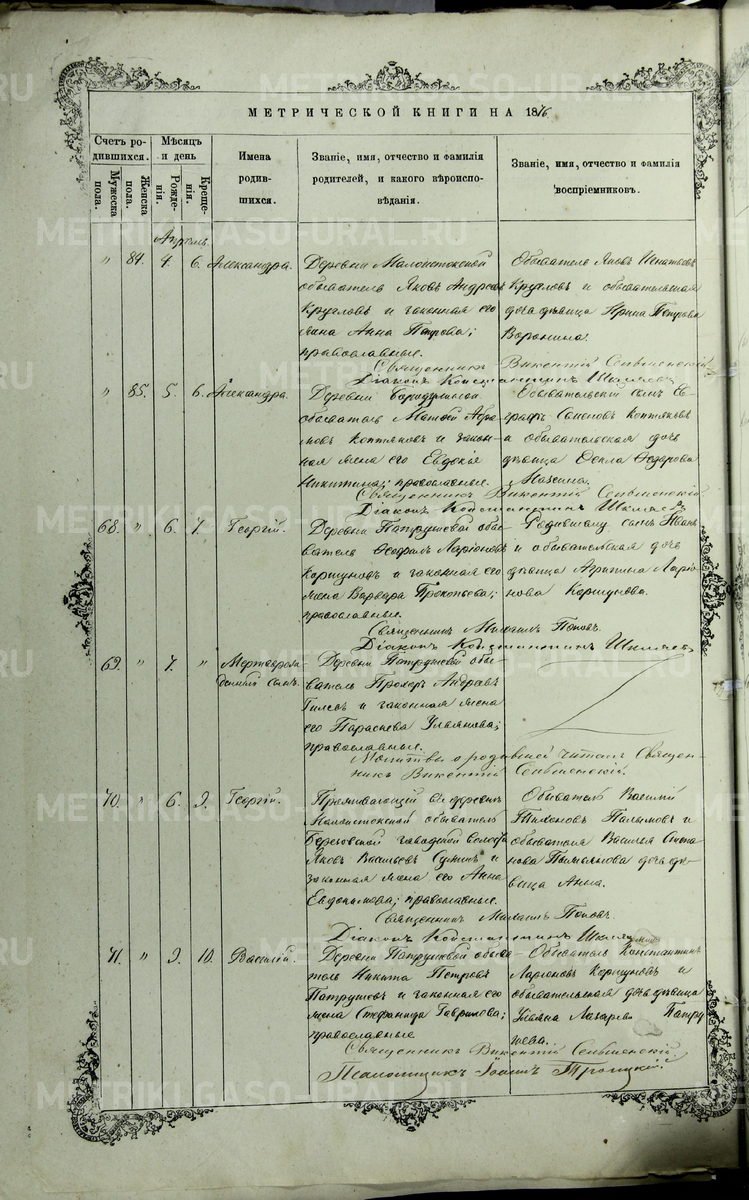 МЕТРИЧЕСКОЙ КНИГИ НА 1876
Счетъ родившихся.
Мужеска пола.
Женска пола.
Мѣсяцъ и день
Рожденія.
Крещенія.
Имена родившихся.
Званіе, имя, отчество и фамилія родителей, и какого вѣроисповѣданія.
Званіе, имя, отчество и фамилія воспріемниковъ.
Апрѣль
" 84. 4. 6. Александра.
Деревни Малоистокской
обыватель Яковъ Андреевъ
Кругловъ и законная его
жена Анна Петрова;
православные.
Обыватель Яковъ Игнатьевъ
Кругловъ и обывательская
дочь дѣвица Ирина Петрова
Воронина.
Священникъ Викентій
Діаконъ Константинъ Шиляевъ
" 85. 5. 6. Александра.
Деревни
обыватель Матвей Абра-
мовъ Коптяковъ и закон-
ная жена его Евдокія
Никитина; православные.
Обывательскій сынъ Ев-
графъ Семеновъ Коптяковъ
и обывательская дочь
дѣвица Ѳекла Ѳедорова
Священникъ Викентій
Діаконъ Константинъ Шиляевъ
68. " 6. 7. Георгій.
Деревни Патрушевой обы-
ватель Ѳеофилъ Ларіоновъ
Коршуновъ и законная его
жена Варвара Прокопьева;
православные.
Родившему сынъ Иванъ
и обывательская дочь
дѣвица Агрипина Ларіо-
нова Коршунова.
Священникъ Михаилъ Поповъ.
Діаконъ Константинъ Шиляевъ
69. " 7. " Мертворож-
денный сынъ.
Деревни Патрушевой обы-
ватель Прохоръ Андреевъ
Гилевъ и законная жена
его Параскева Ульянова;
православные.
Молитвы о родившей читалъ Священ-
никъ Викентій
70. " 6. 9. Георгій.
Проживающій въ деревни
Малоистокской обыватель
Березовской заводской волости
Яковъ Васильевъ и
законная жена его Анна
Евдокимова; православные.
Обыватель Василій
и
обывателя Василья Степа-
нова дочь дѣ-
вица Анна.
Священникъ Михаилъ Поповъ.
Діаконъ Константинъ Шиляевъ
71. " 9. 10. Василій.
Деревни Патрушевой обыва-
тель Никита Петровъ
Патрушевъ и законная его
жена Стефанида Гаврилова;
православные
Обыватель Константинъ
Ларіоновъ Коршуновъ и
обывательская дочь дѣвица
Ульяна Лазарева Патру-
шева.
Священникъ Викентій
Псаломщикъ Іоаннъ Троицкій
METRIKI.GASO-URAL.RU